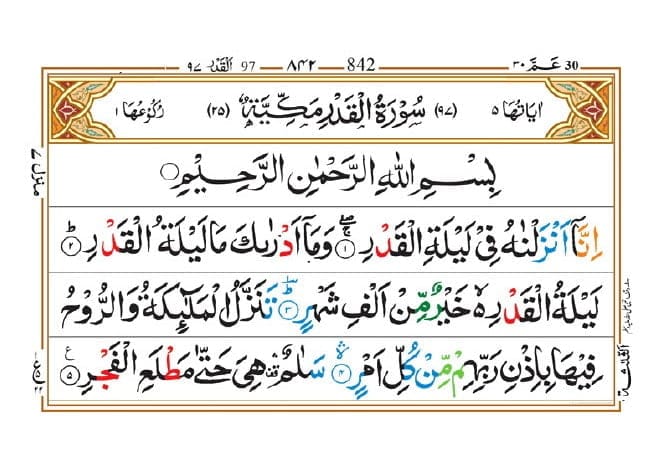 ٣٠ عَـمَّ 30 842 ٨٤٢ 97 اَلْقَدْر ٩٧
اٰيَاتُهَا ٥ (٩٧) سُوْرَةُ الْقَدْرِ مَكِّيَّةٌ (٢٥) رُكُوْعُهَا ١
بِسْمِ اللهِ الرَّحْمٰنِ الرَّحِيْمِ
اِنَّاۤ اَنْزَلْنٰهُ فِيْ لَيْلَةِ الْقَدْرِ ۚۖ ﴿١﴾ وَمَاۤ اَدْرٰىكَ مَا لَيْلَةُ الْقَدْرِ ؕ ﴿٢﴾
لَيْلَةُ الْقَدْرِ ۙ۬ خَيْرٌ مِّنْ اَلْفِ شَهْرٍ ؕؔ ﴿٣﴾ تَنَزَّلُ الْمَلٰٓئِكَةُ وَالرُّوْحُ
فِيْهَا بِاِذْنِ رَبِّهِمْ مِّنْ كُلِّ اَمْرٍ ۙۛ ﴿٤﴾ سَلٰمٌ ۛ۫ هِيَ حَتّٰى مَطْلَعِ الْفَجْرِ ﴿٥﴾ ع
منزل ٧